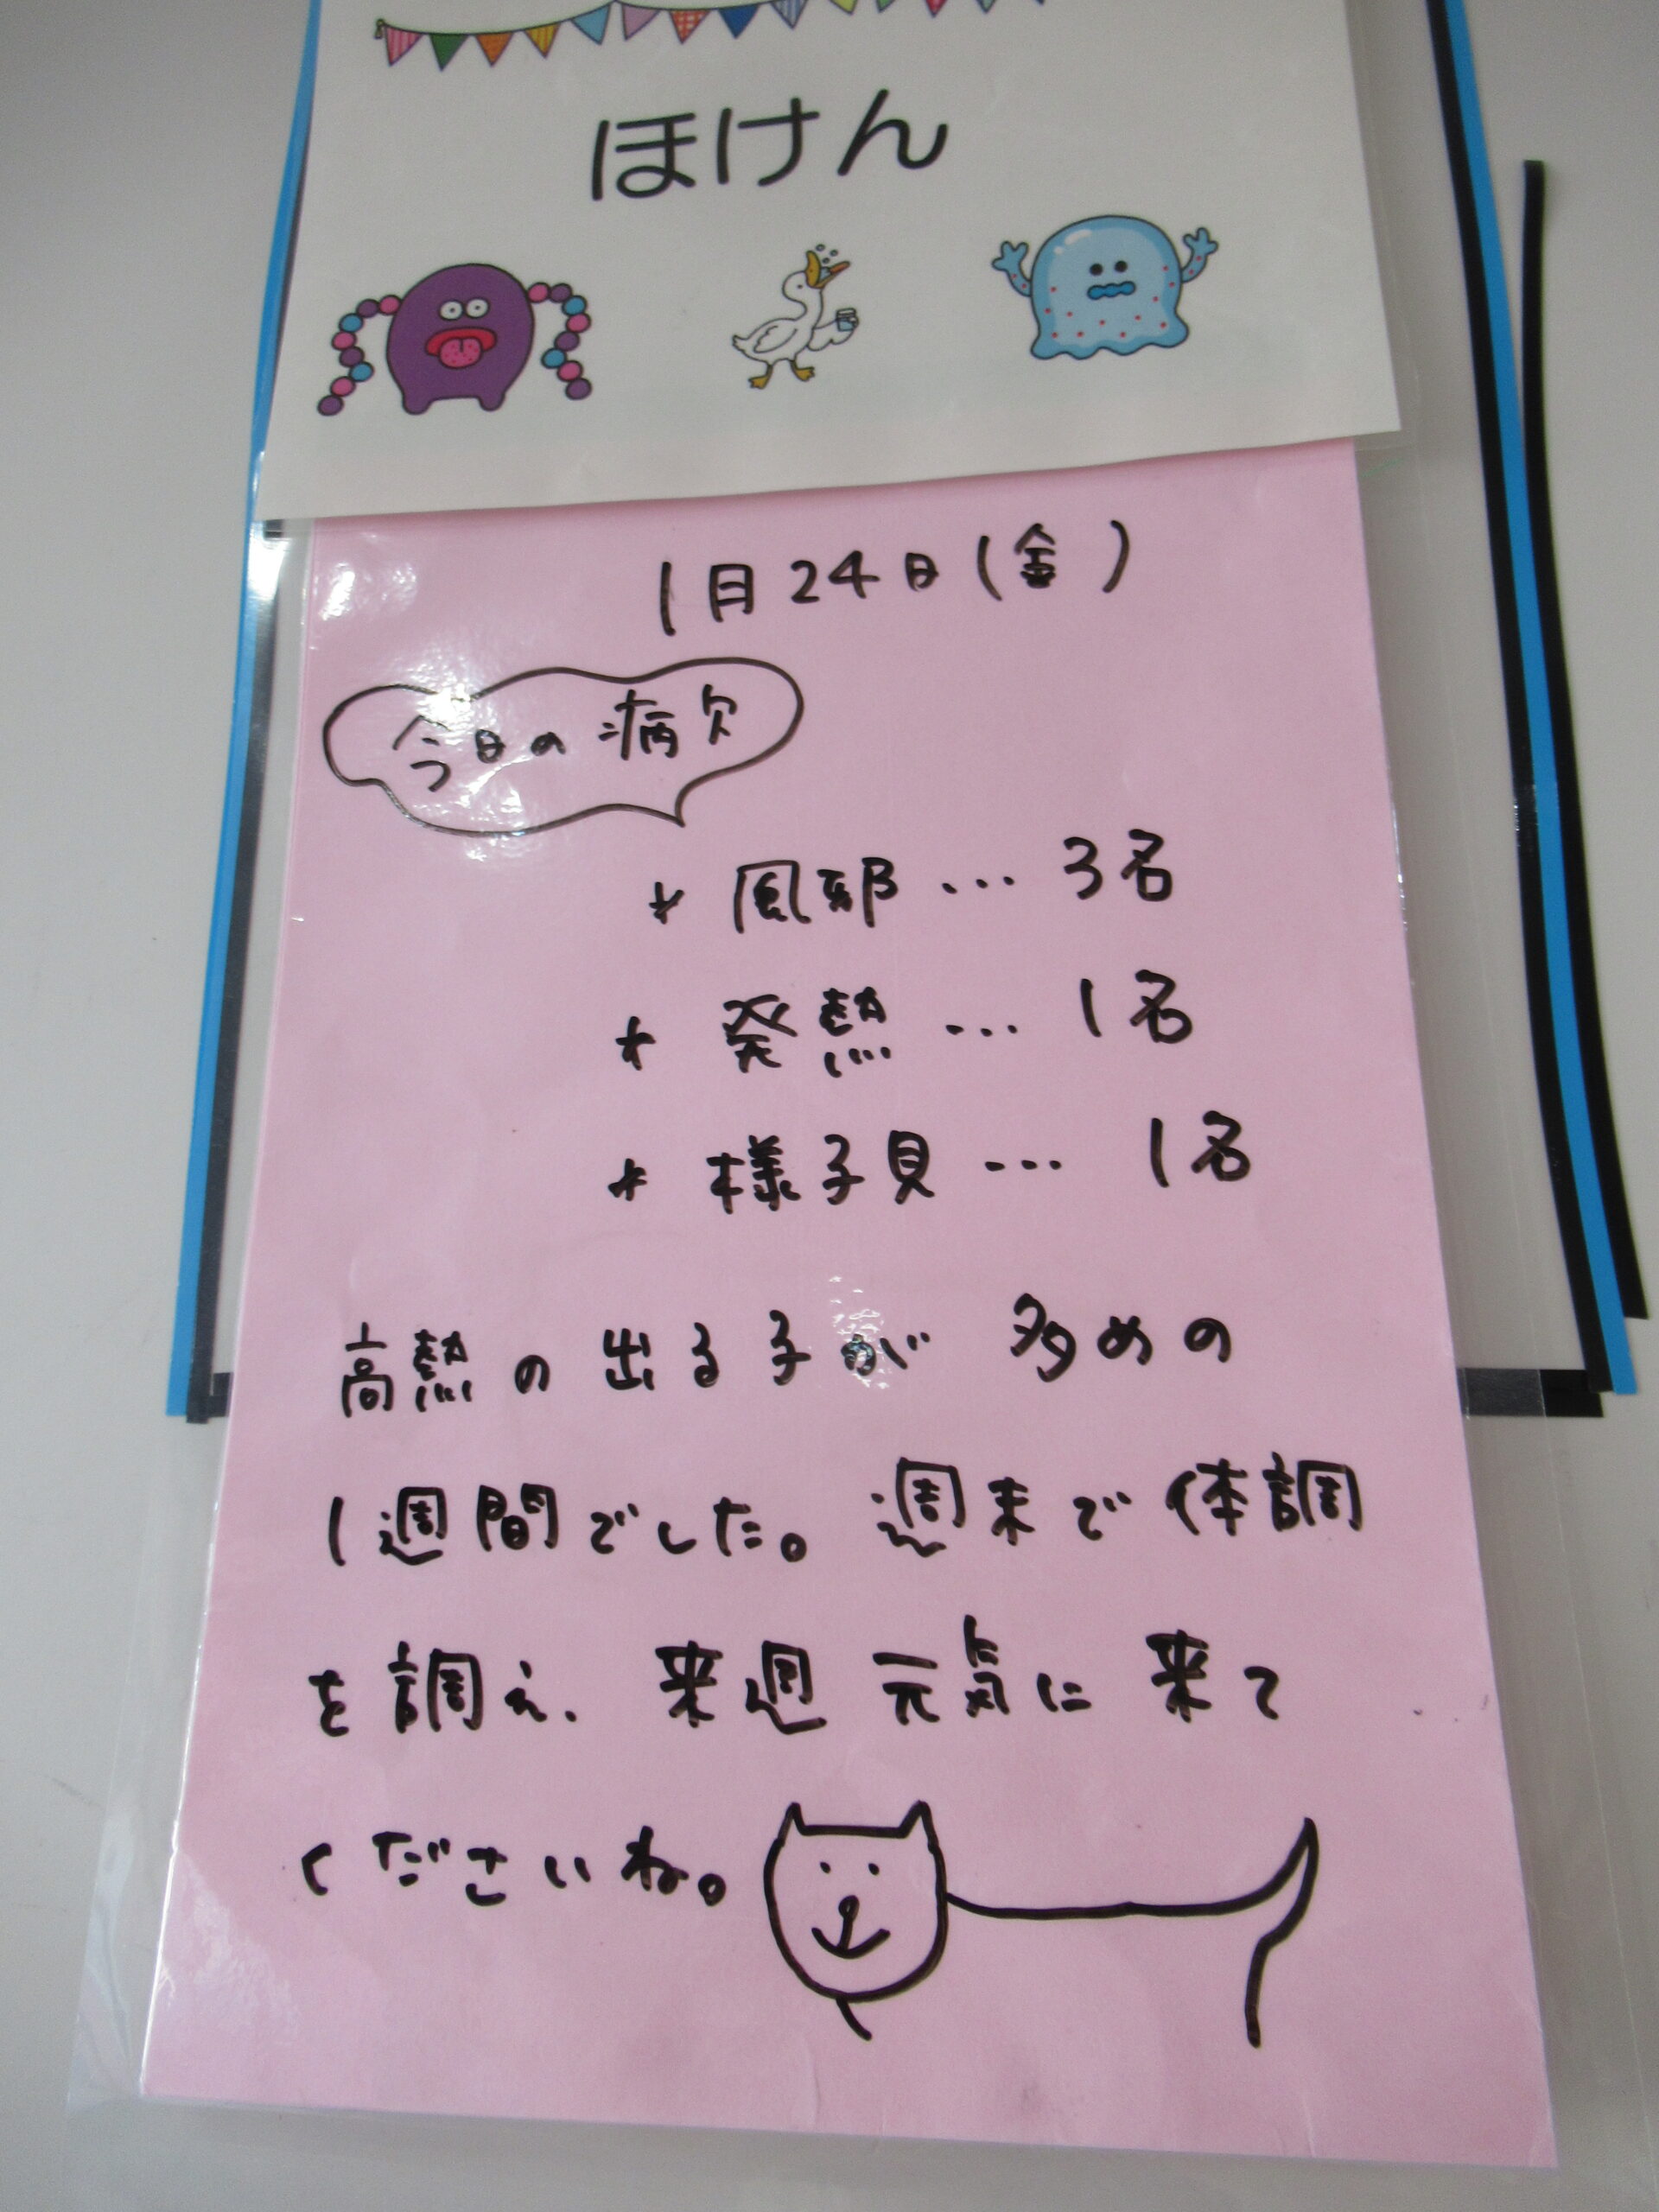 ほけん
1月24日(金)
今日の病欠
* 風邪…3名
* 発熱…1名
* 様子見…1名
高熱の出る子が多めの
1週間でした。週末で体調
を調え、来週元気に来て
くださいね。